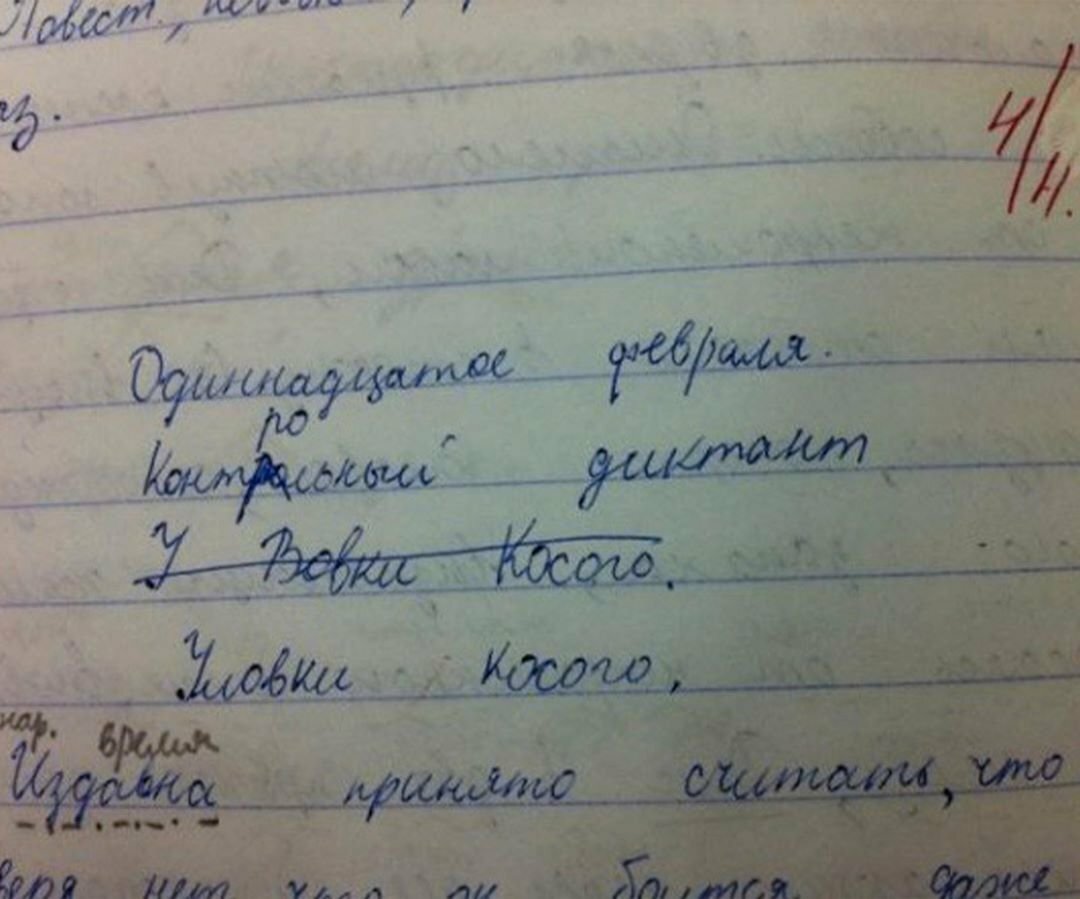 Повест.,
аз.
4/4.
Одиннадцатое февраля.
ро
Контрольный диктант
У Вовки Косого.
Уловки косого.
нар. время
Издавна принято считать, что
зверя нет, чего он боится даже